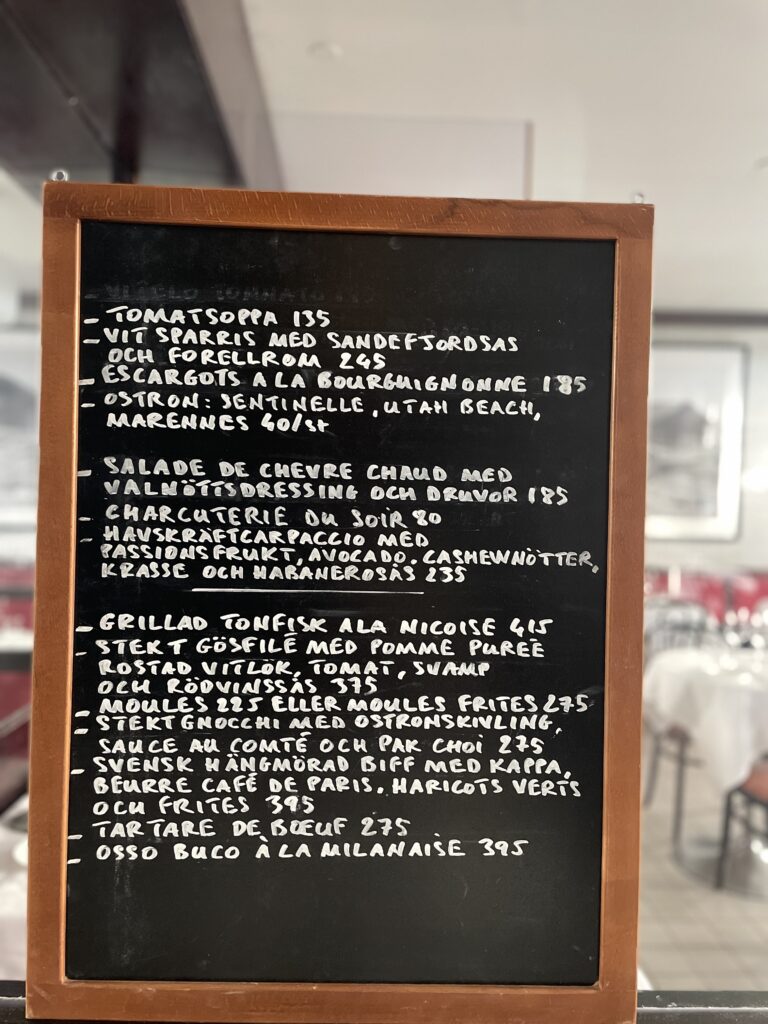 - TOMATSOPPA 135
- VIT SPARRIS MED SANDEFJORDSAS
OCH FORELLROM 245
- ESCARGOTS A LA BOURGUIGNONNE 185
- OSTRON: SENTINELLE, UTAH BEACH,
MARENNES 40/st
- SALADE DE CHEVRE CHAUD MED
VALNÖTTSDRESSING OCH DRUVOR 185
- CHARCUTERIE DU SOIR 80
- HAVSKRÄFTCARPACCIO MED
PASSIONSFRUKT, AVOCADO. CASHEWNÖTTER,
KRASSE OCH HABANEROSÅS 235
- GRILLAD TONFISK ALA NICOISE 415
- STEKT GÖSFILÉ MED POMME PURÉE
ROSTAD VITLÖK, TOMAT, SVAMP
OCH RÖDVINSSÅS 375
- MOULES 225 ELLER MOULES FRITES 275
- STEKT GNOCCHI MED OSTRONSKIVLING,
SAUCE AU COMTÉ OCH PAK CHOI 275
- SVENSK HÄNGMÖRAD BIFF MED KAPPA,
BEURRE CAFÉ DE PARIS. HARICOTS VERTS
OCH FRITES 395
- TARTARE DE BŒUF 275
- OSSO BUCO À LA MILANAISE 395